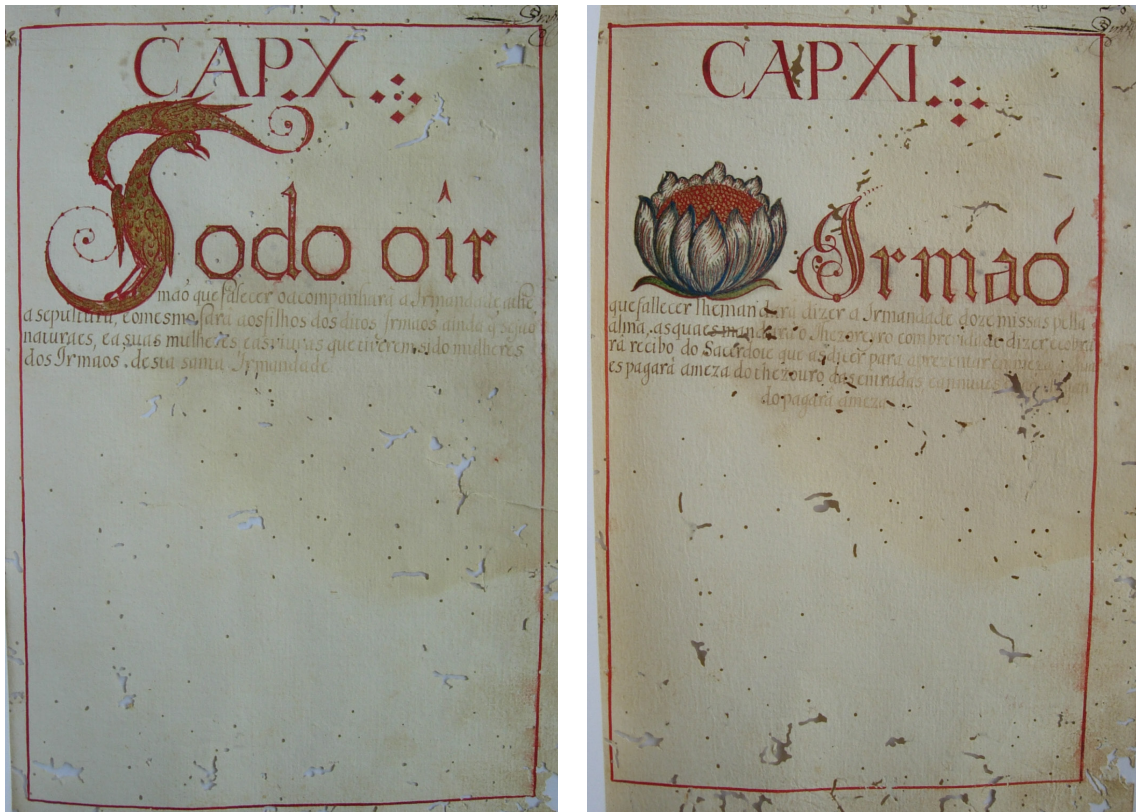 CAP.X
Todo oir
maõ que falecer o acompanhará a Irmandade athe
a sepultura, e o mesmo fará aos filhos dos ditos Irmaos ainda q sejaõ
naturaes, e a suas mulheres, e as viuvas que tiverem sido mulheres
dos Irmaos. desta santa Irmandade
CAP XI
Irmaõ
que fallecer lhe mandará dizer a Irmandade doze missas pella
alma, as quaes mandará o Thezoreiro com brevidade dizer e cobra
rá recibo do Sacerdote que as dicer para aprezentar em meza
es pagará a meza do thezouro das entradas e annuaes
do pagará a meza